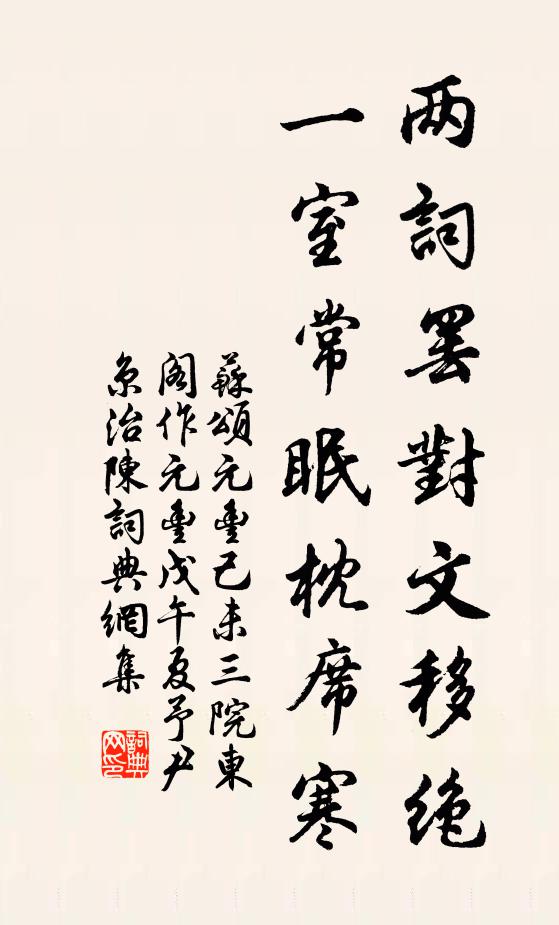 两詞罷對文移絶
一室常眠枕席寒
蘇頌元豐己未三院東
閣作元豐戊午夏予尹
京治陳詞典網集
詞典
网印